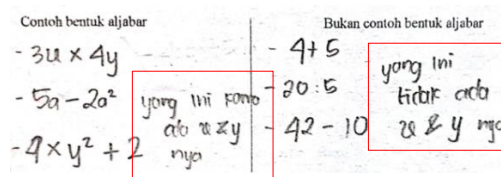 Contoh bentuk aljabar
- 3u × 4y
- 5a - 2a²
- 9 × y² + 2
yang ini karna
ada x & y
nya
Bukan contoh bentuk aljabar
- 4 + 5
- 20 : 5
- 42 - 10
yang ini
tidak ada
x & y nya